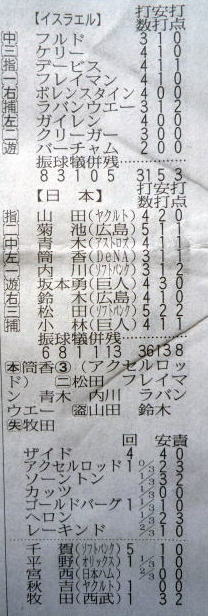 [イスラエル] 打数 安打 打点
中 フルド 3 1 0
三 ケリー 4 1 0
指 デービス 4 1 1
一 フレイマン 4 1 0
右 ボレンスタイン 4 0 0
捕 ラバンウエー 3 1 2
左 ガイレン 4 0 0
二 クリーガー 3 0 0
遊 バーチャム 2 0 0
振球犠併残
8 3 1 0 5 31 5 3
[日本] 打数 安打 打点
指 山田(ヤクルト) 4 2 0
二 菊池(広島) 5 1 1
中 青木(アストロズ) 4 1 1
左 筒香(DeNA) 3 1 1
一 内川(ソフトバンク) 3 1 2
遊 坂本勇(巨人) 4 3 0
右 鈴木(広島) 4 1 0
三 松田(ソフトバンク) 5 2 2
捕 小林(巨人) 4 1 1
振球犠併残
6 8 1 1 13 36 13 8
本筒香③(アクセルロッ
ド) 二松田 フレイマ
ン 青木 内川 ラバン
ウエー 盗山田 鈴木
失牧田
回 安 責
ザイド 4 4 0
アクセルロッド 1 0/3 2 3
ソーントン 1/3 3 2
カッツ 1/3 0 0
ゴールドバーグ 1 1/3 1 0
ヘロン 2/3 2 3
レーキンド 2/3 1 0
千賀(ソフトバンク) 5 1 0
平野(オリックス) 1 1/3 1 0
宮西(日本ハム) 2/3 0 0
秋吉(ヤクルト) 1 0 0
牧田(西武) 1 3 2